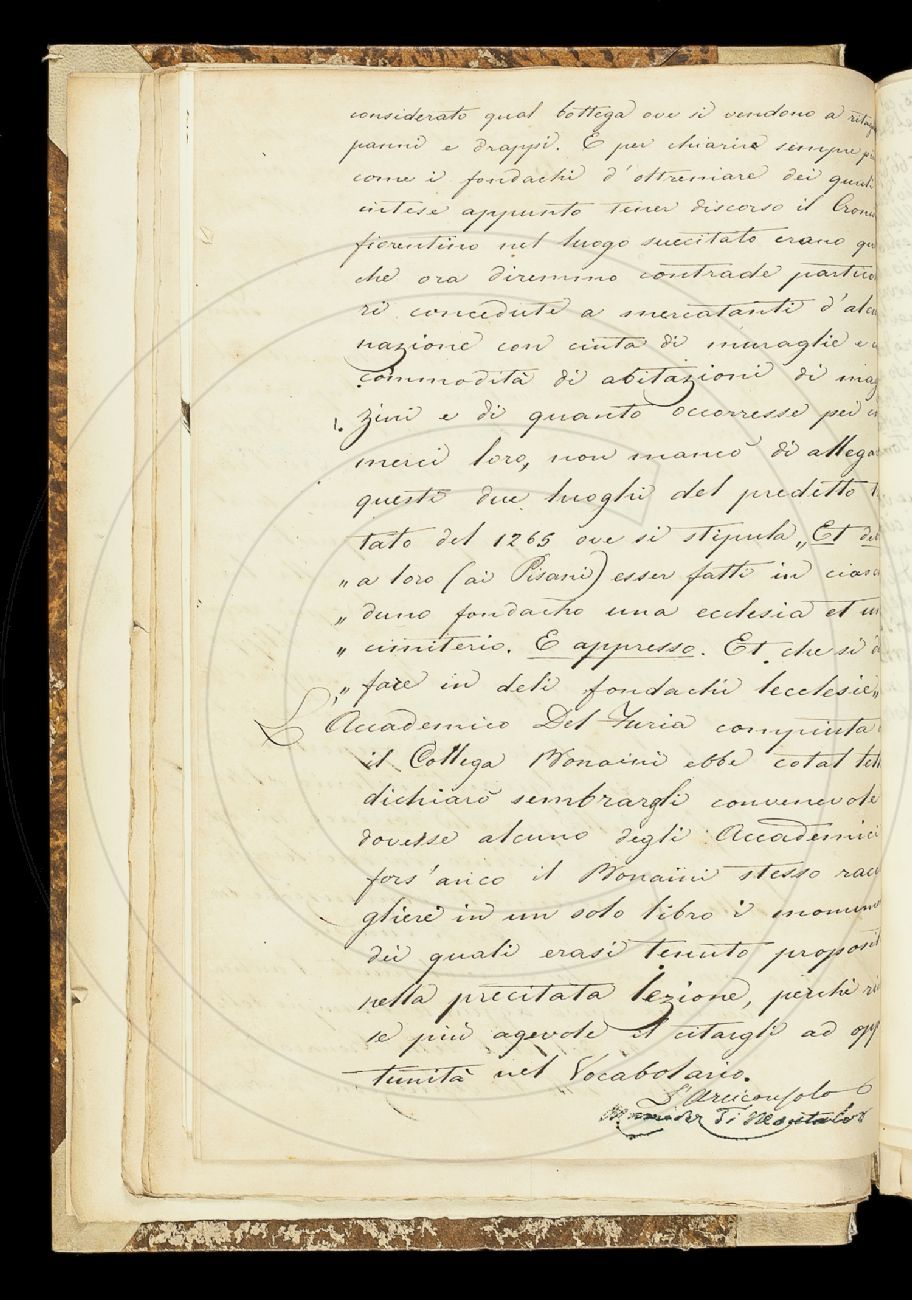 considerato qual bottega ove si vendono a ritag
panni e drappi. E per chiarire sempre più
come i fondachi d'oltremare dei quali
intese appunto tener discorso il Cron
fiorentino nel luogo succitato erano qu
che ora diremmo contrade partico
ri concedute a mercatanti d'alcu
nazione con cinta di muraglie e
commodità di abitazioni di mag
1. zini e di quanto occorresse per
merci loro, non mancò di allega
questi due luoghi del predetto
tato del 1265 ove si stipula „Et deb
„ a loro (ai Pisani) esser fatti in ciasc
„ duno fondacho una ecclesia et un
„ cimiterio. E appresso. Et che si d
„ fare in deli fondachi lecclesie„
L'Accademico Del Furia compiuta
il Collega Bonaini ebbe cotal let
dichiarò sembrargli convenevole
dovesse alcuno degli Accademici
fors'anco il Bonaini stesso racc
gliere in un solo libro i monum
dei quali erasi tenuto proposit
nella precitata lezione, perchè ri
se più agevole il citargli ad opp
tunità nel Vocabolario.
L'Arciconsolo